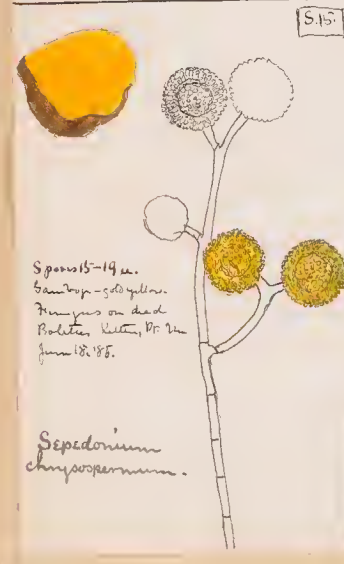 S.15.
Spores 15-19 u.
Gamboge-gold yellow.
Fungus on dead
Boletus
June 18, '85.
Sepedonium
chrysospermum.